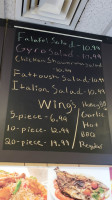 Falafel Salad - 10.99
Gyro Salad - 11.99
Chicken Shawerma Salad
- 10.99
Fattoush Salad - 10.99
Italian Salad
Wings
5-piece - 6.99
10-piece - 12.99
20-piece - 19.99
Honey BBQ
Garlic
Hot
BBQ
Regular